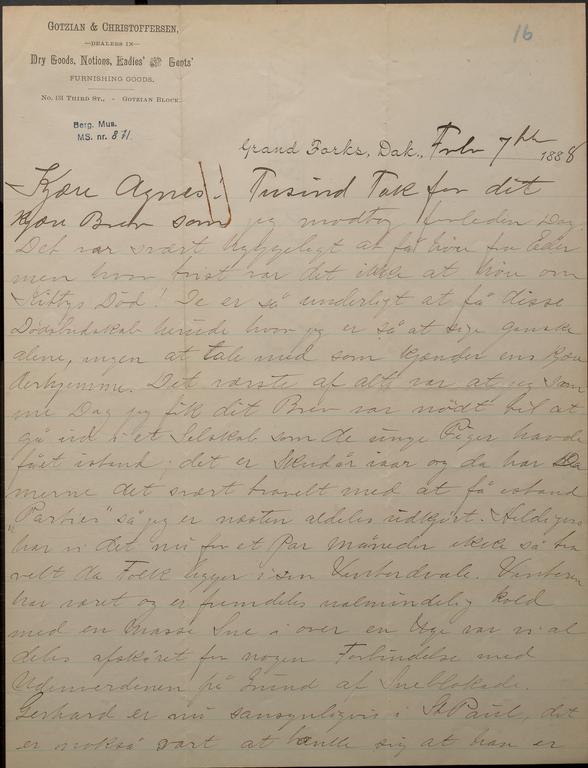 16
GOTZIAN & CHRISTOFFERSEN,
—DEALERS IN—
Dry Goods, Notions, Ladies' and Gents'
FURNISHING GOODS.
No. 131 THIRD ST., - GOTZIAN BLOCK.
Berg. Mus.
MS. nr. 871.
Grand Forks, Dak., Febr 7th 1888
Kjære Agnes! Tusind Tak for dit
kjære Brev som jeg modtog forleden Dag.
Det var svært hyggeligt at få høre fra Eder
men hvor trist var det ikke at høre om
Kittys Død! De er så underligt at få disse
Dødsbudskab herude hvor jeg er så at sige ganske
alene, ingen at tale med som kjender ens Kjære
derhjemme. Det værste af alt var at jeg sam
me Dag jeg fik dit Brev var nødt til at
gå ud i et Selskab som de unge Piger havde
fået istand; det er Skudår iaar og da har Da
merne det svært travelt med at få istand
"Parties" så jeg er næsten aldeles udkjørt. Heldigvis
har vi det nu for et Par måneder ikke så tra
velt da Folk ligger i sin Vinterdvale. Vinteren
har været og er fremdeles ualmindelig kold
med en Masse Sne i over en Uge var vi al
deles afskåret for nogen Forbindelse med
Udenverdenen på Grund af Sneblokade.
Gerhard er nu sansynligvis i St Paul, det
er nokså rart at tænke sig at han er